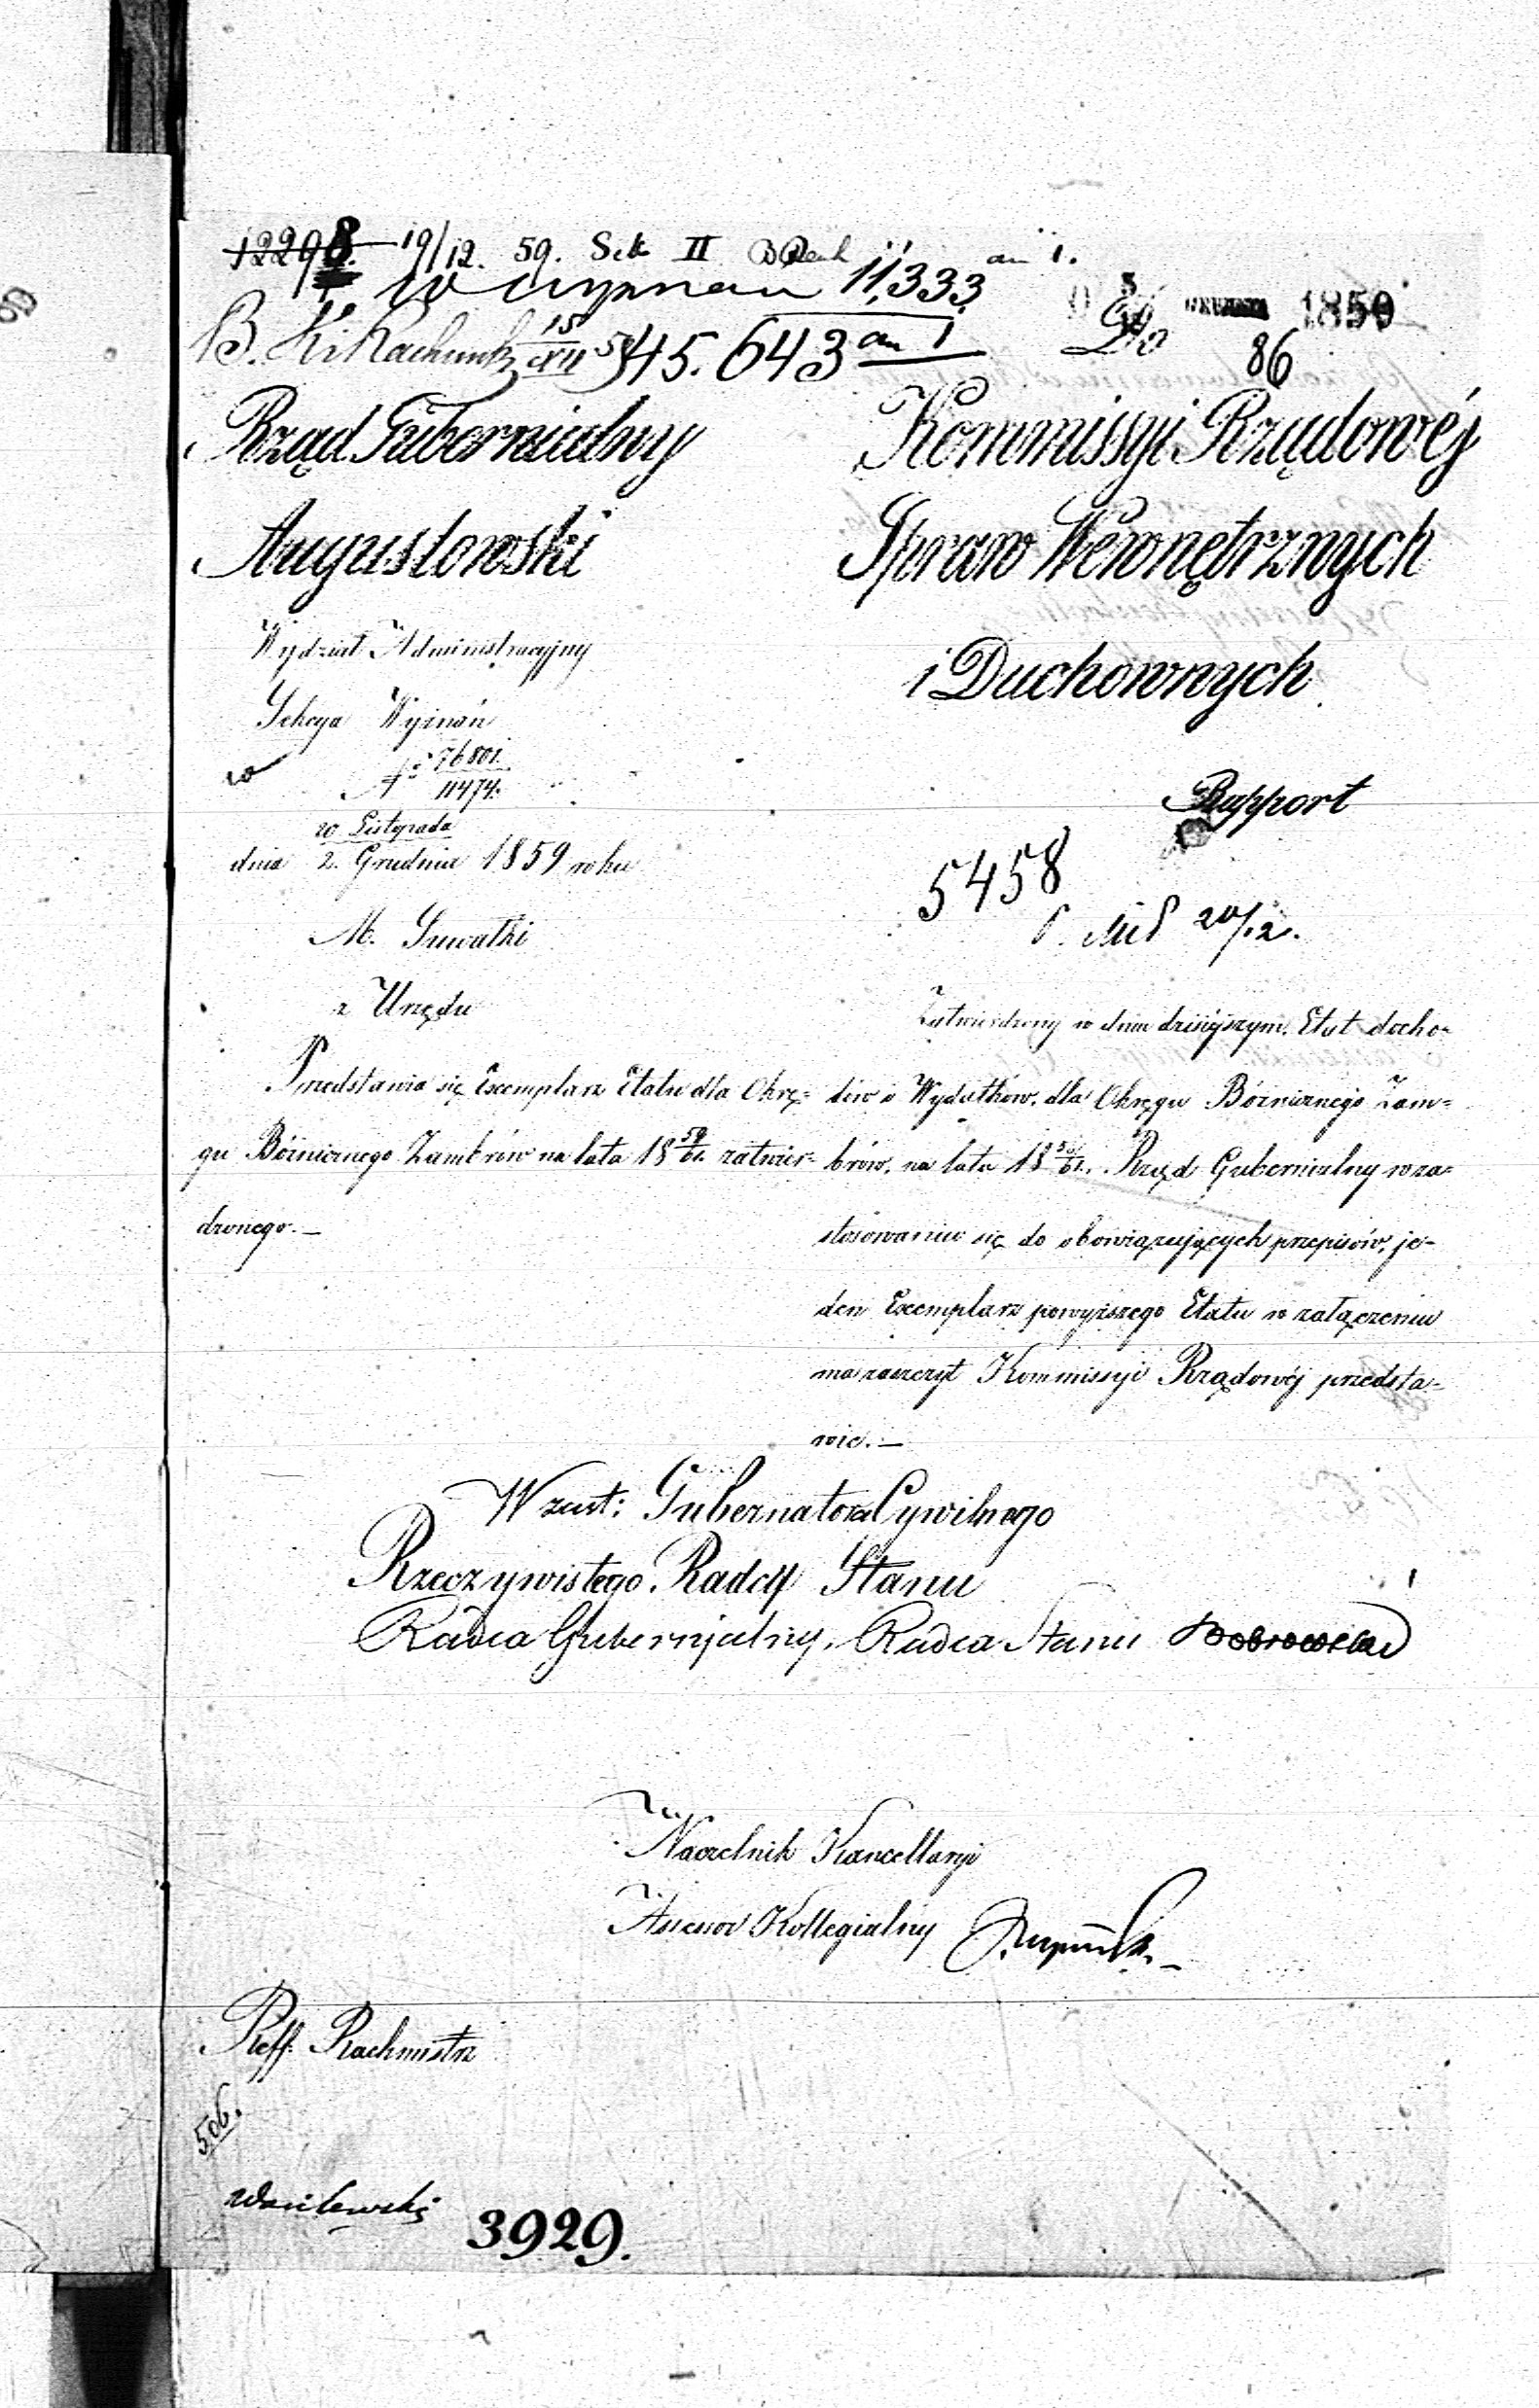 12298. 19/12. 59. Sek II
w wyznan 11,333 an 1.
B. K. Rachunk. 15/XII 59 45.643 an 1
1859
Do
86
Rząd Gubernialny
Augustowski
Wydział Administracyjny
Sekcya Wyznań
№ 76801/11474.
dnia 20 Listopada/2. Grudnia 1859 roku
M. Suwałki
z Urzędu
Przedstawia się Exemplarz Etatu dla Okrę-
gu Bóżniczego Zambrów na lata 18 59/61. zatwier-
dzonego.—
Kommissyi Rządowéj
Spraw Wewnętrznych
i Duchownych
Rapport
5458
20/12.
Zatwierdzony w dniu dzisiéjszym. Etat docho-
dów i Wydatków, dla Okręgu Bóżniczego Zam-
brów, na lata 18 59/61. Rząd Gubernialny w za-
stosowaniu się do obowiązujących przepisów, je-
den Exemplarz powyższego Etatu w załączeniu
ma zaszczyt Kommissyi Rządowéj przedsta-
wić.—
W zast: Gubernatora Cywilnego
Rzeczywistego Radcy Stanu
Radca Gubernjalny, Radca Stanu Dobrowolski
Naczelnik Kancellaryi
Assesor Kollegialny
Reff. Rachmistrz
506.
Wasilewski
3929.